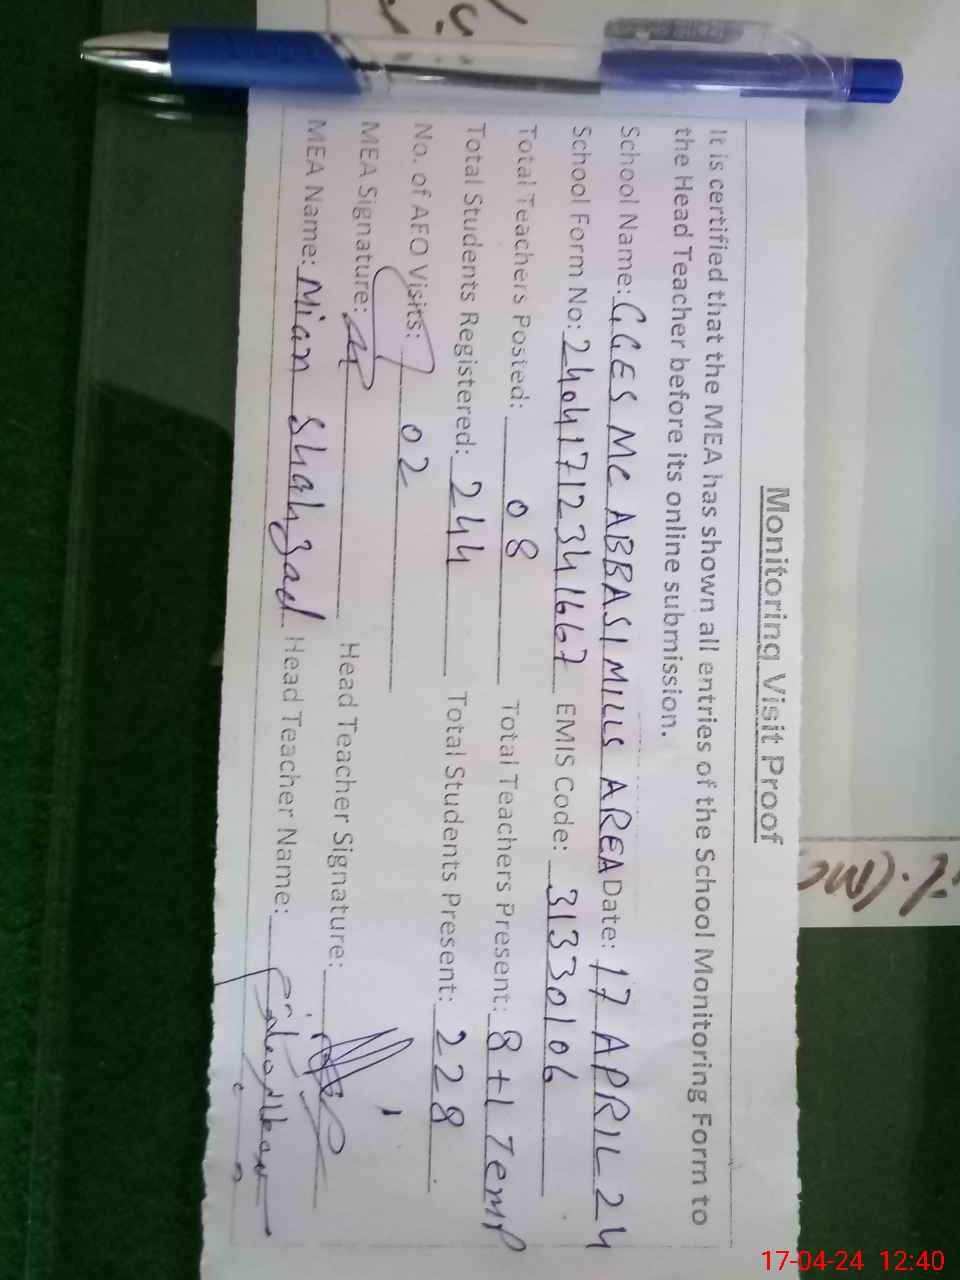 Monitoring Visit Proof
It is certified that the MEA has shown all entries of the School Monitoring Form to
the Head Teacher before its online submission.
School Name: GGES MC ABBASI MILLS AREA Date: 17 APRIL 24
School Form No: 24041712341667 EMIS Code: 31330106
Total Teachers Posted: 08 Total Teachers Present: 8+1 Temp
Total Students Registered: 244 Total Students Present: 228
No. of AEO Visits: 02
MEA Signature: Head Teacher Signature:
MEA Name: Mian Shahzad Head Teacher Name:
17-04-24 12:40